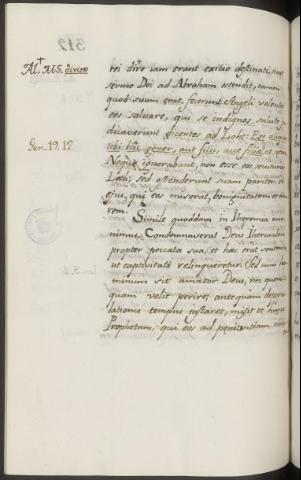 312
Al. MS. divino
rei diro iam erant exitio destinati,
sermo Dei ad Abraham ostendit, tamen
quod suum erat, fecerunt Angeli volentes
eos salvare, qui se indignos salute
dicaverunt dicentes ad Loth: Est
ubi hic gener, aut filii, aut filiae
Gen. 19. 12
Neque ignorabant, non esse eos
Loth; sed ostenderunt suam pariter et
ejus, qui eos miserat, benignitatem et
rem. Simile quoddam in Jheremia
nimus. Condemnaverat Deus
propter peccata sua, et haec erat sententia
ut captivitati relinqueretur. Sed cum
minum sit amator Deus, nec
quam velit perire, antequam
lationis templus instaret, misit
Prophetam, qui eos ad penitentiam